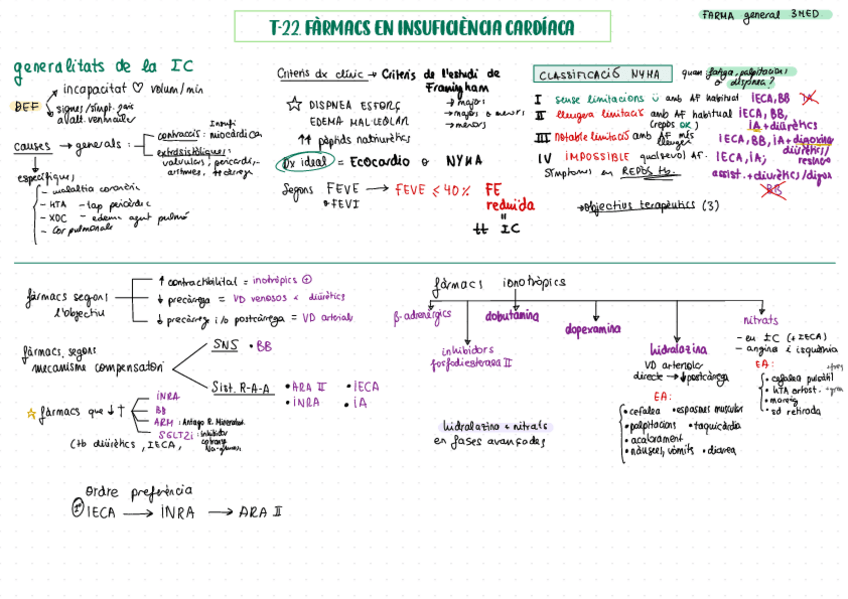 FARMA general 3MED
T-22. FÀRMACS EN INSUFICIÈNCIA CARDÍACA
generalitats de la IC
DEF
incapacitat ♡ volum/min
signes/símpt. pais
a/alt. ventricular
causes → generals:
contracció: miocàrdica
extrasistòliques:
valvulars, pericardi,
específiques
- malaltia coronària
- HTA - tap pericàrdic
- XOC - edema agut pulmó
- Cor pulmonale
Criteris dx clínic → Criteris de l'estudi de
Framigham
☆ DISPNEA ESFORÇ
EDEMA MAL·LEOLAR
→ majors
→ majors o menors
→ menors
↑↑ pèptids natriurètics
Dx ideal = Ecocardio o NYHA
Segons FEVE → FEVE ≤ 40% FE
o FEVI
reduïda
=
tt IC
CLASSIFICACIÓ NYHA
quan fatiga, palpitacions
o dispnea?
I sense limitacions amb AF habitual IECA, BB
II lleugera limitació amb AF habitual IECA, BB,
(repòs OK) iA + diürètics
III Notable limitació amb AF més
lleuger
IECA, BB, iA + digoxina
diürètics/
IV IMPOSSIBLE qualsevol AF. IECA, iA;
símptomes en REPÒS tb.
assist. + diürètics/digox
BB
→ Objectius terapèutics (3)
fàrmacs segons
l'objectiu
↑ contractibilitat = inotròpics ⊕
↓ precàrrega = VD venosos i diürètics
↓ precàrreg i/o postcàrrega = VD arterials
fàrmacs segons
mecanisme compensatori
SNS • BB
Sist. R-A-A • ARA II • IECA
• INRA • iA
☆ fàrmacs que ↓↑
INRA
BB
ARM: Antago R. Mineral
SGLT2i: inhibidor
(tb diürètics, IECA,
Ordre preferència
1r IECA → INRA → ARA II
fàrmacs ionotròpics
β-adrenèrgics
inhibidors
fosfodiesterasa II
dobutamina
dopexamina
hidralazina
VD arteriolar
directe → ↓ postcàrrega
EA:
• cefalea • espasmes musculars
• palpitacions • taquicàrdia
• acalorament
• nàusees, vòmits • diarrea
nitrats
- en IC (+IECA)
- angines i isquèmia
EA:
• cefalea pulsàtil
• hTA ortost.
• mareig
• sd retirada
hidralazina + nitrats
en fases avançades